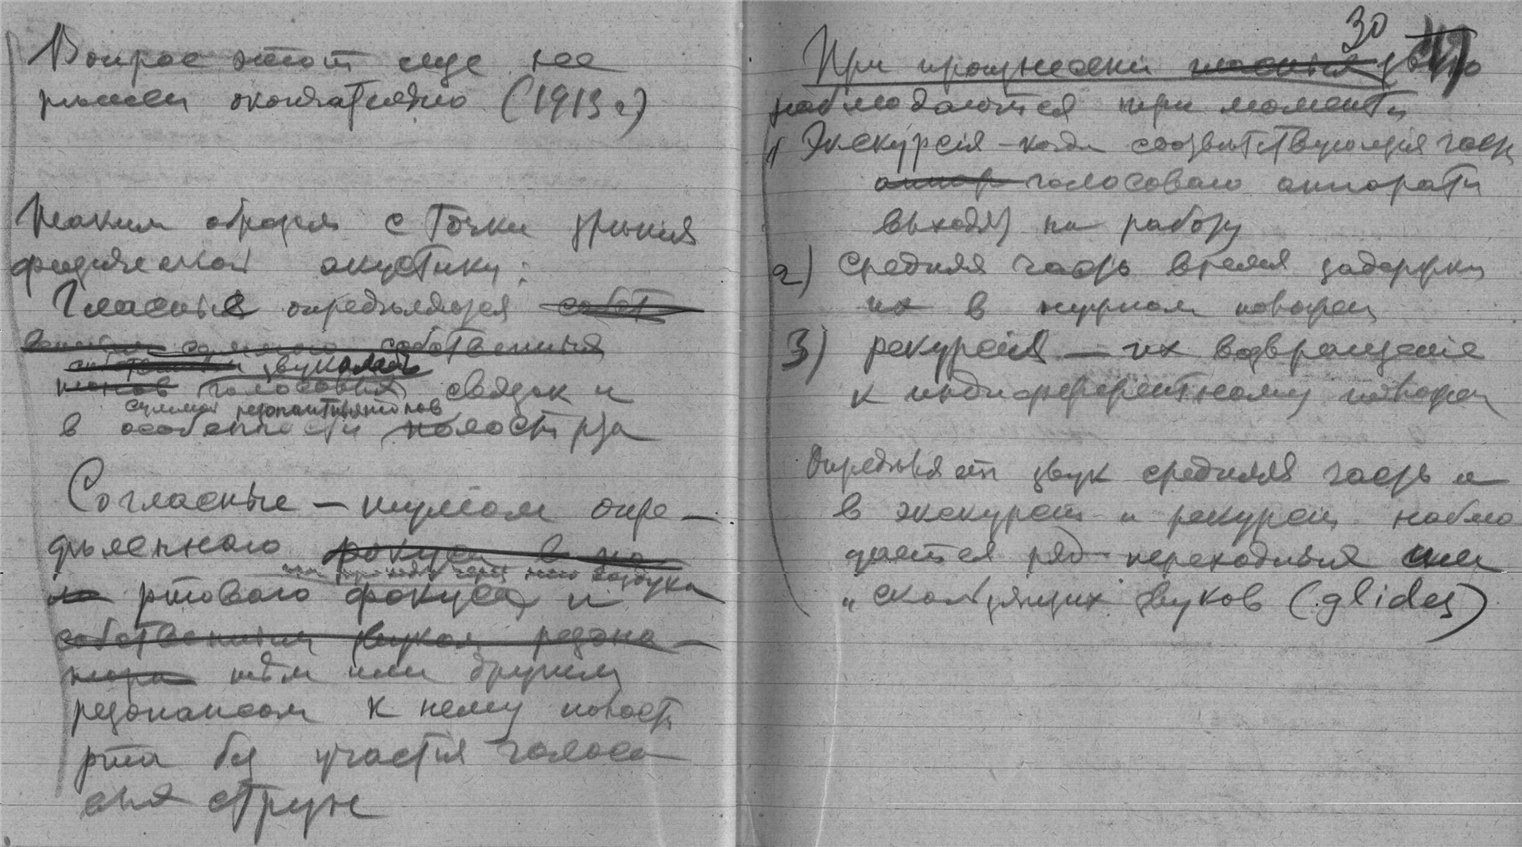 Вопрос этот еще не
решен окончательно (1913 г)
Таким образом с точки зрения
физической акустики:
Гласные определяются собст
собственным
звуком
тонов голосовых связок и
суммой резонанс тонов
в особенности полост рта
Согласные – шумом опре–
дѣленнаго фокуса в по
при проходе через него воздуха
ротового фокуса и
собственным звуком резона–
тора тѣм или другим
резонансом к нему полости
рта без участия голосо
вых струн
30
При произнесении гласных звука
наблюдаются три момента
1 Экскурсія – когда соответствующія части
аппар голосоваго аппарата
выходят на работу
2) средняя часть время задержки
их в нужном поворот
3) рекурсія – их возвращеніе
к индифферентному
Определяет звук средняя часть а
в экскурсии и рекурсии наблю
дается ряд переходных или
„скользящих звуков (glides)